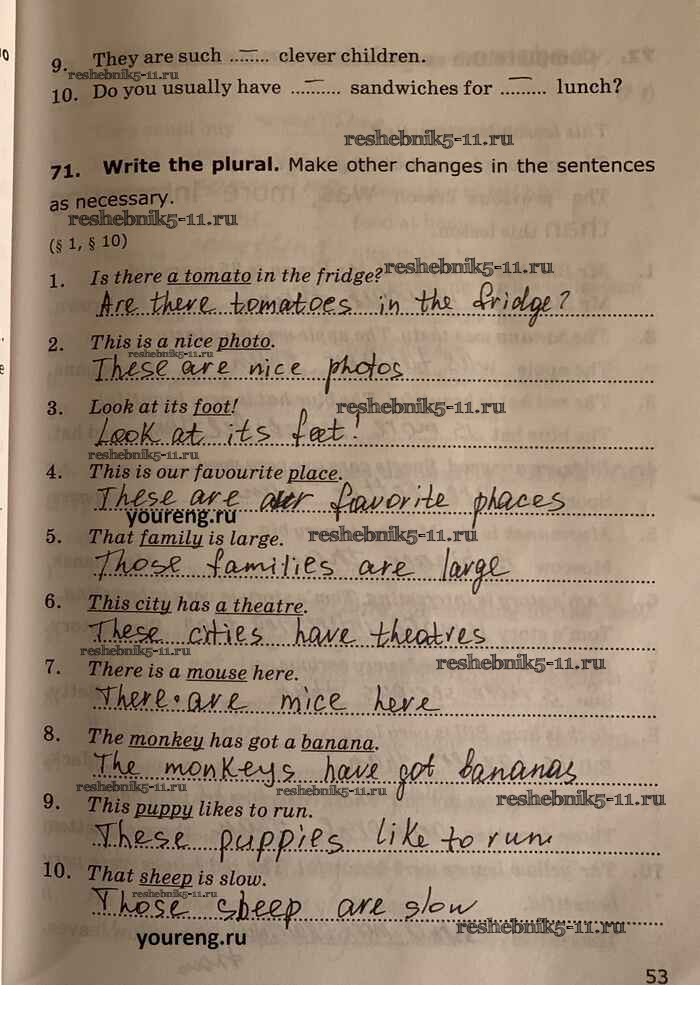 9. They are such ........ clever children.
reshebnik5-11.ru
10. Do you usually have ......... sandwiches for ........ lunch?
reshebnik5-11.ru
71. Write the plural. Make other changes in the sentences
as necessary.
reshebnik5-11.ru
(§ 1, § 10)
1. Is there a tomato in the fridge? reshebnik5-11.ru
Are there tomatoes in the fridge?
2. This is a nice photo.
reshebnik5-11.ru
These are nice photos
3. Look at its foot! reshebnik5-11.ru
Look at its feet!
reshebnik5-11.ru
4. This is our favourite place.
These are our favorite places
youreng.ru
5. That family is large. reshebnik5-11.ru
Those families are large
6. This city has a theatre.
These cities have theatres
reshebnik5-11.ru
7. There is a mouse here. reshebnik5-11.ru
There are mice here
8. The monkey has got a banana.
The monkeys have got bananas
reshebnik5-11.ru reshebnik5-11.ru reshebnik5-11.ru
9. This puppy likes to run.
These puppies like to run
10. That sheep is slow.
reshebnik5-11.ru
Those sheep are slow
youreng.ru reshebnik5-11.ru
53